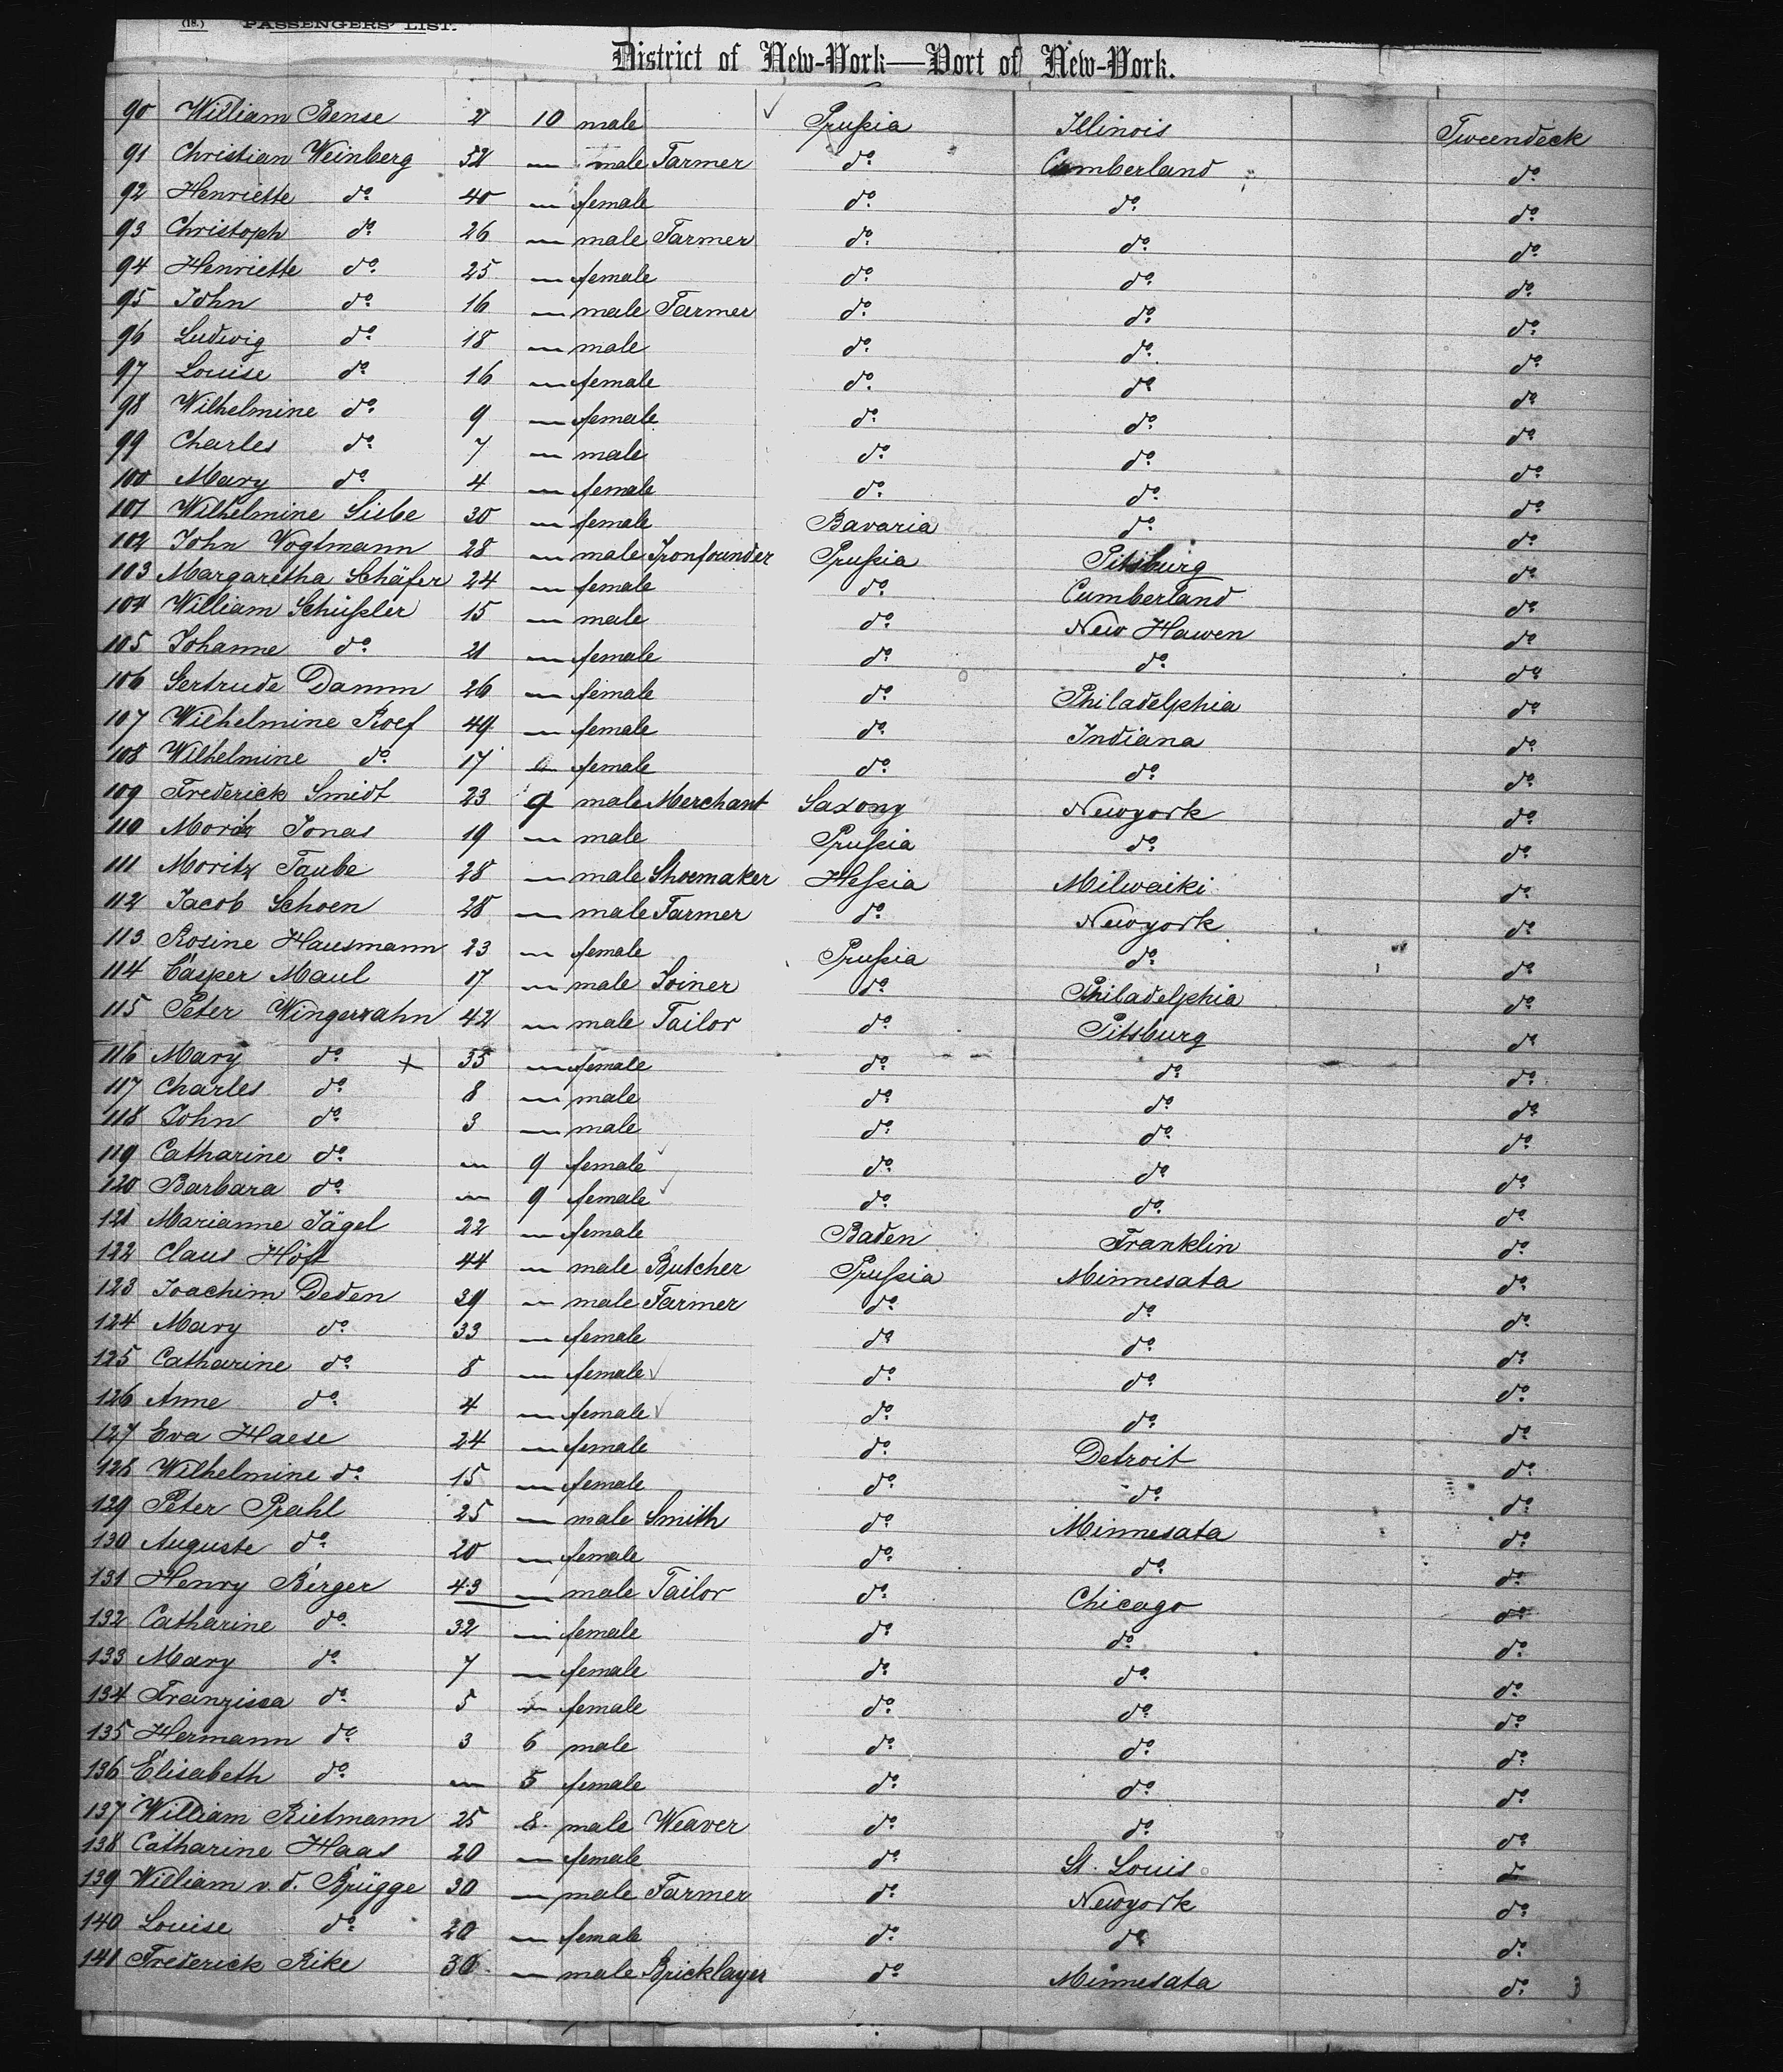 (18.) PASSENGERS' LIST.
District of New-York—Port of New-York.
90 William Bense 2 10 male Prußia Illinois Tweendeck
91 Christian Weinberg 52 — male Farmer do. Cumberland do.
92 Henriette do. 40 — female do. do. do.
93 Christoph do. 26 — male Farmer do. do. do.
94 Henriette do. 25 — female do. do. do.
95 John do. 16 — male Farmer do. do. do.
96 Ludwig do. 18 — male do. do. do.
97 Louise do. 16 — female do. do. do.
98 Wilhelmine do. 9 — female do. do. do.
99 Charles do. 7 — male do. do. do.
100 Mary do. 4 — female do. do. do.
101 Wilhelmine Siebe 30 — female Bavaria do. do.
102 John Vogtmann 28 — male Ironfounder Prußia Pitsburg do.
103 Margaretha Schäfer 24 — female do. Cumberland do.
104 William Schüßler 15 — male do. New Hawen do.
105 Johanne do. 21 — female do. do. do.
106 Gertrude Damm 26 — female do. Philadelphia do.
107 Wilhelmine Roef 49 — female do. Indiana do.
108 Wilhelmine do. 17 — female do. do. do.
109 Frederick Smidt 23 9 male Merchant Saxony Newyork do.
110 Moritz Jonas 19 — male Prußia do. do.
111 Moritz Taube 28 — male Shoemaker Heßia Milwaiki do.
112 Jacob Schoen 28 — male Farmer do. Newyork do.
113 Rosine Hausmann 23 — female Prußia do. do.
114 Casper Maul 17 — male Joiner do. Philadelphia do.
115 Peter Wingerzahn 42 — male Tailor do. Pitsburg do.
116 Mary do. + 35 — female do. do. do.
117 Charles do. 8 — male do. do. do.
118 John do. 3 — male do. do. do.
119 Catharine do. — 9 female do. do. do.
120 Barbara do. — 9 female do. do. do.
121 Marianne Jägel 22 — female Baden Franklin do.
122 Claus Höft 44 — male Butcher Prußia Minnesata do.
123 Joachim Deden 39 — male Farmer do. do. do.
124 Mary do. 33 — female do. do. do.
125 Catharine do. 8 — female do. do. do.
126 Anne do. 4 — female do. do. do.
127 Eva Haese 24 — female do. Detroit do.
128 Wilhelmine do. 15 — female do. do. do.
129 Peter Prahl 25 — male Smith do. Minnesata do.
130 Auguste do. 20 — female do. do. do.
131 Henry Berger 43 — male Tailor do. Chicago do.
132 Catharine do. 32 — female do. do. do.
133 Mary do. 7 — female do. do. do.
134 Franzisca do. 5 — female do. do. do.
135 Hermann do. 3 6 male do. do. do.
136 Elisabeth do. — 5 female do. do. do.
137 William Rietmann 25 8 male Weaver do. do. do.
138 Catharine Haas 20 — female do. St. Louis do.
139 William v. d. Brügge 30 — male Farmer do. Newyork do.
140 Louise do. 20 — female do. do. do.
141 Frederick Rike 30 — male Bricklayer do. Minnesata do.